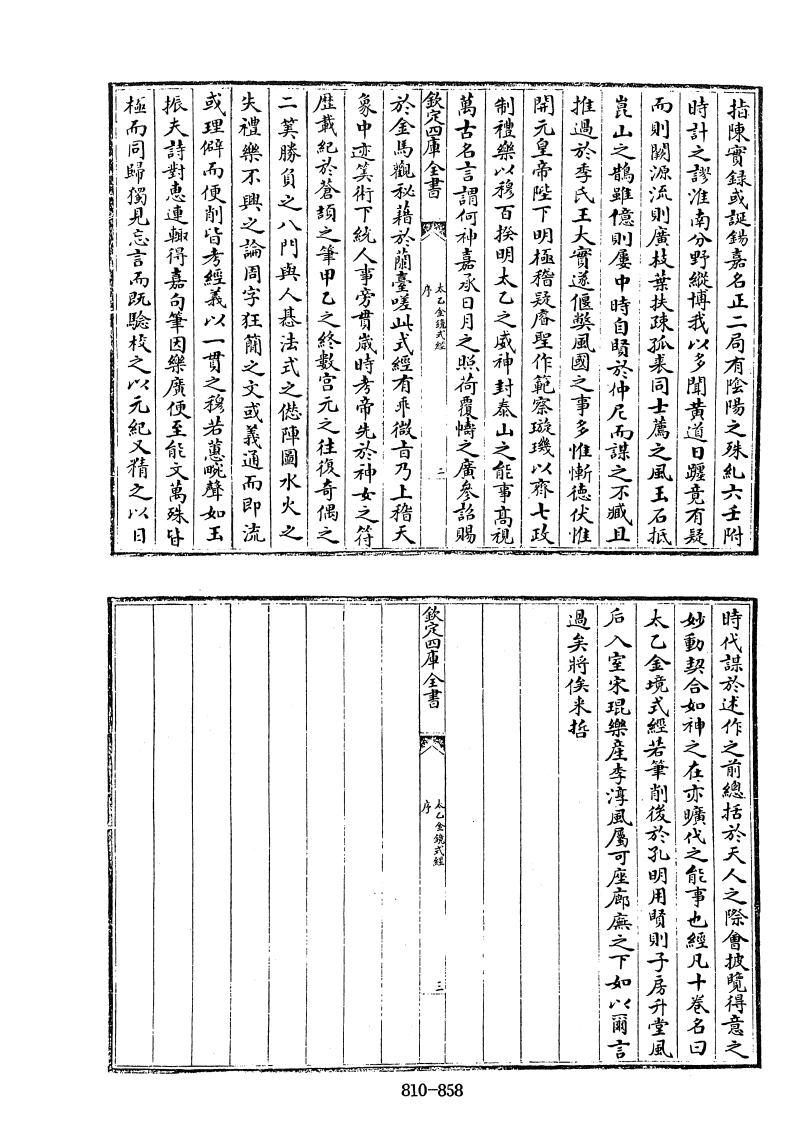 指陳實録或誕錫嘉名正二局有隂陽之殊糺六壬附
時計之謬淮南分野縱博我以多聞黄道日躔竟有疑
而則闕源流則廣枝葉扶疎孤裘同士薦之風玉石抵
崑山之鵲雖億則屢中時自賢於仲尼而謀之不臧且
推過於李氏王大實遂偃獘風國之事多惟慚徳伏惟
開元皇帝陛下明極稽疑睿聖作範察璇璣以齊七政
制禮樂以穆百揆明太乙之威神封泰山之能事髙視
萬古名言謂何神嘉承日月之照荷覆幬之廣參詔賜
欽定四庫全書
太乙金鏡式經
序
二
於金馬觀秘藉於蘭臺嗟此式經有乖微㫖乃上稽天
象中迹筭術下統人事旁貫嵗時考帝先於神女之符
歴載紀於蒼頡之筆甲乙之終數宫元之往復奇偶之
二筭勝負之八門與人基法式之僁陣圖水火之
失禮樂不興之論周字狂蕳之文或義通而即流
或理僻而便削皆考經義以一貫之穆若蕙畹聲如玉
振夫詩對惠連輙得嘉句筆因樂廣便至能文萬殊㫖
極而同歸獨見忘言而既驗校之以元紀又精之以日
時代謀於述作之前總括於天人之際會披覽得意之
妙動契合如神之在亦曠代之能事也經凡十巻名曰
太乙金境式經若筆削後於孔明用賢則子房升堂風
后入室宋琨樂産李淳風屬可座廊廡之下如以爾言
過矣將俟来哲
欽定四庫全書
太乙金鏡式經
序
三
810-858